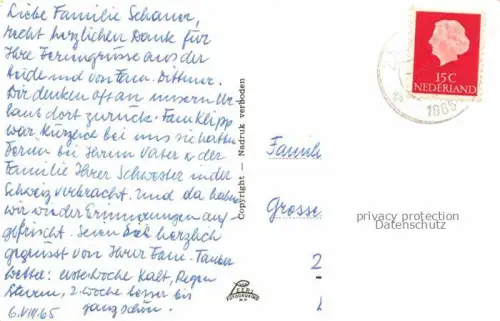 Liebe Familie Schauer,
recht herzlichen Dank für
Ihre Feriengrüsse aus der
Heide und von Fam. Dittmer.
Wir denken oft an unsern Ur-
laub dort zurück. Fam Klipp
war kürzlich bei uns sie hatten
Ferien bei Ihrem Vater & der
Familie Ihrer Schwester in der
Schweiz verbracht. Und da haben
wir wieder Erinnerungen auf-
gefrischt. Seien Sie herzlich
gegrüsst von Ihrer Fam.
Wetter: erste Woche kalt, Regen
Sturm, 2. Woche besser bis
6.VIII.65 ganz schön.
Copyright — Nadruk verboden
15 C
NEDERLAND
1965
Famili
Grosse
2
privacy protection
Datenschutz